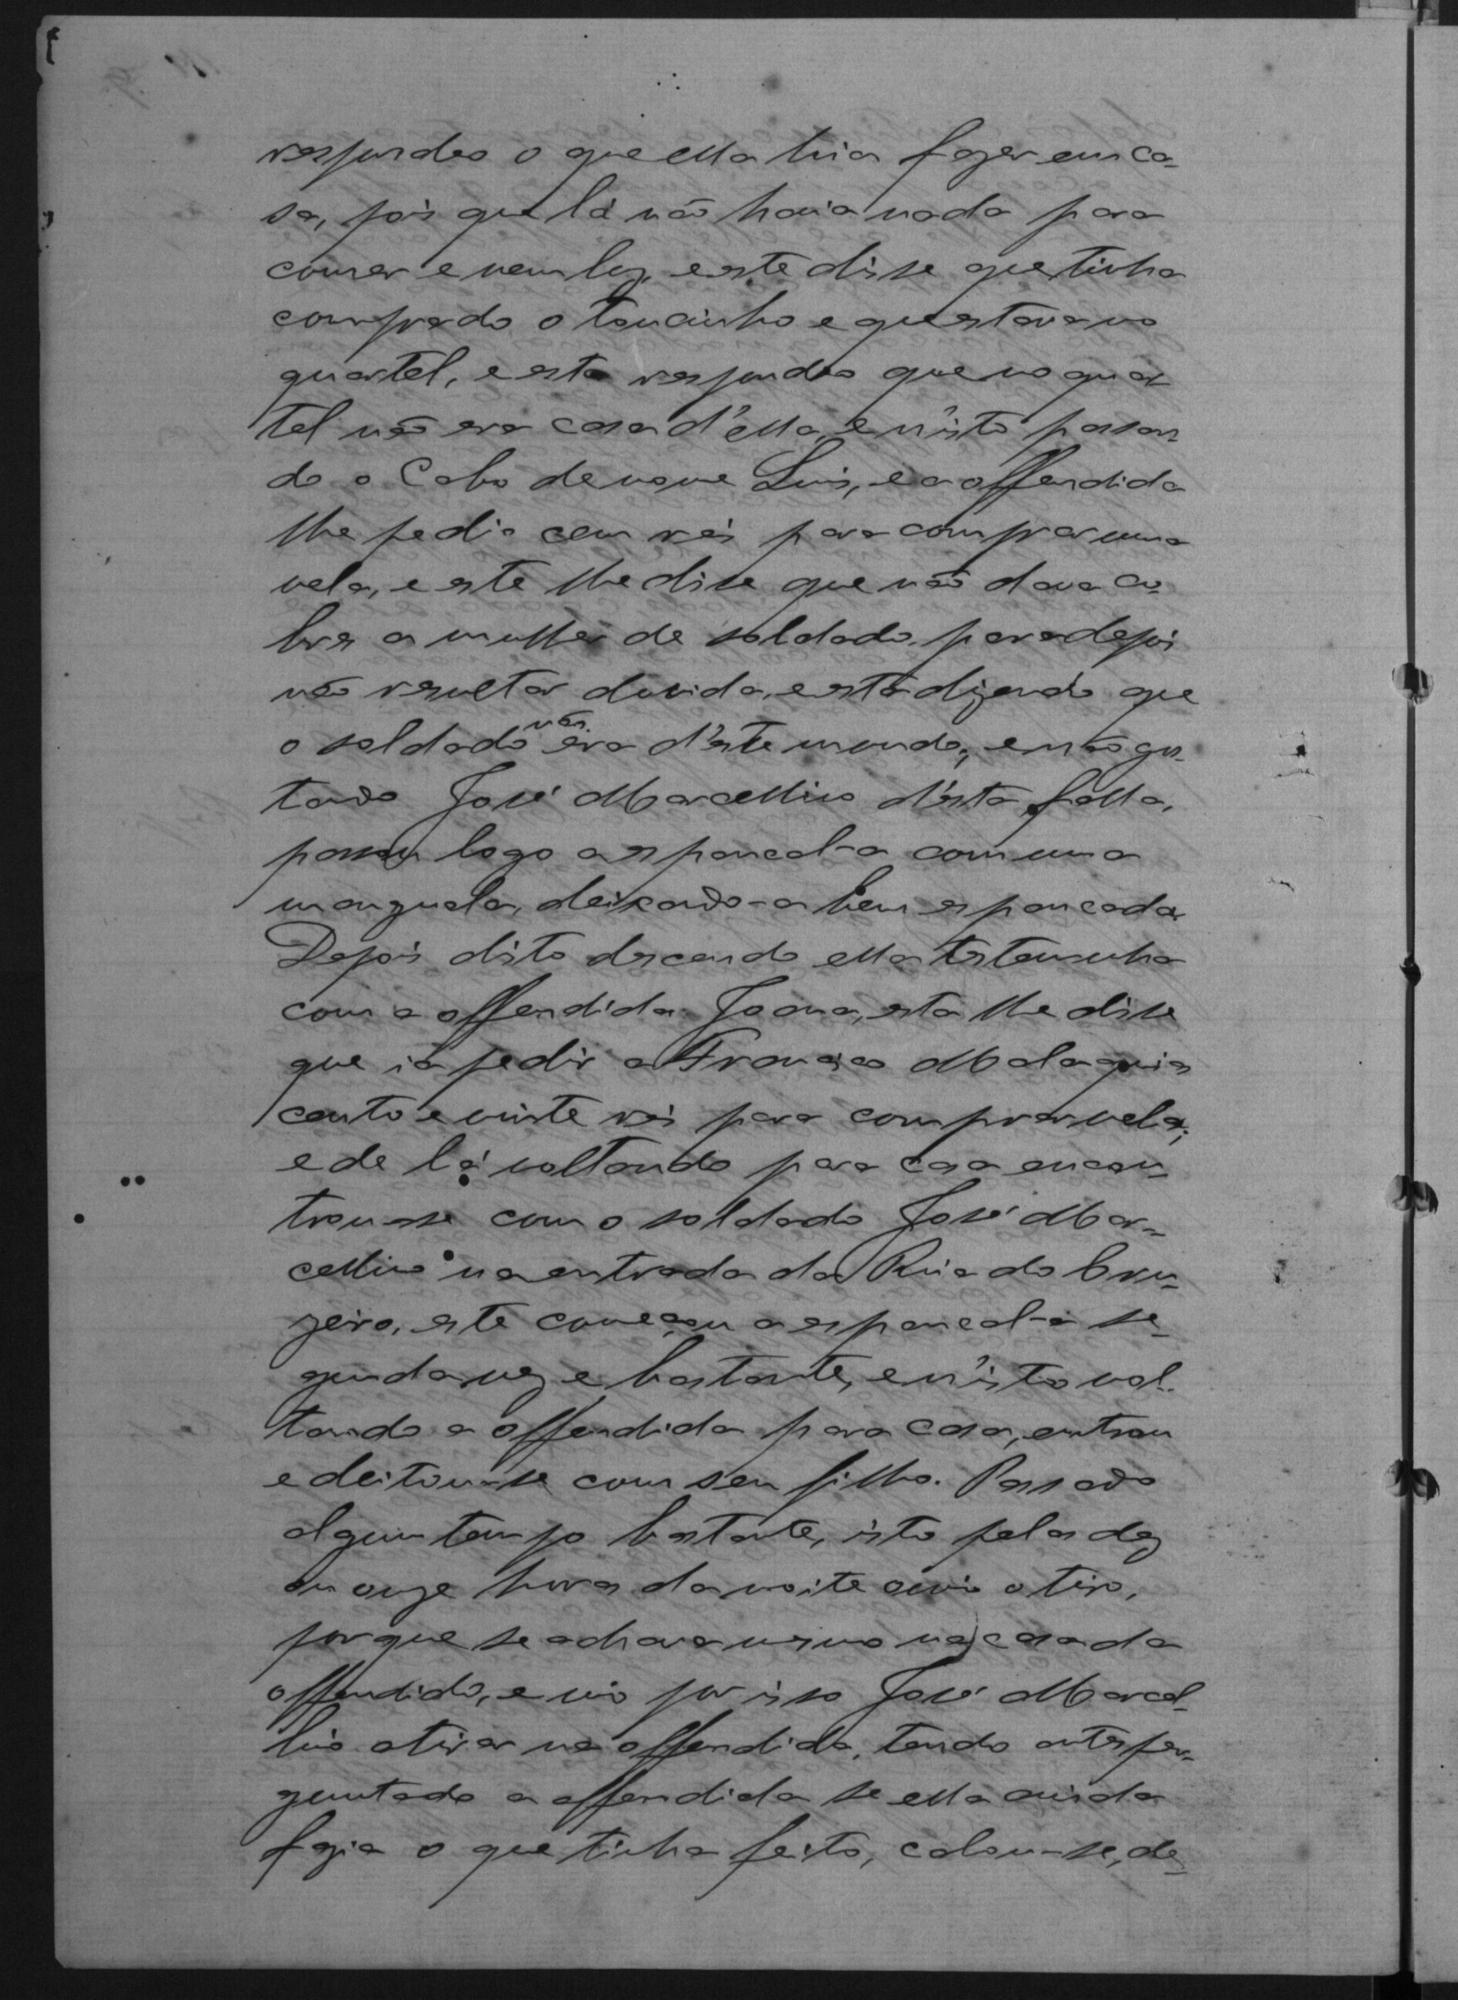 respondeo o que ella hia fazer em ca-
sa, pois que lá não havia nada para
comer e nem luz, e este disse que tinha
comprado o toucinho e que estava no
quartel, e esta respondeo que no quar-
tel não era casa d'ella, e n'isto passan-
do o Cabo de nome Luis, e a offendida
lhe pedio cem reis para comprar uma
vela, e este lhe disse que não dava co-
bres a mulher de soldado, para depois
não resultar duvida, e esta dizendo que
o soldado não era d'este mundo, e não gos-
tando José Marcellino d'esta falla,
passou logo a espancal-a com uma
manguala, deixando-a bem espancada.
Depois disto descendo ella testemunha
com a offendida Joana, esta lhe disse
que ia pedir a Francisco Malaquias
cento e vinte reis para comprar vela;
e de lá voltando para casa encon-
trou-se com o soldado José Mar-
cellino na entrada da Rua do Cru-
zeiro, este começou a espancal-a se-
gunda vez e bastante, e n'isto vol-
tando a offendida para casa, entrou
e deitou-se com seu filho. Passado
algum tempo bastante, isto pelas dez
ou onze horas da noite ouvio o tiro,
porque se achava mesmo na casa da
offendida, e vio por isso José Marcel-
lino atirar na offendida, tendo antes per-
guntado a offendida se ella ainda
fazia o que tinha feito, calou-se, de-